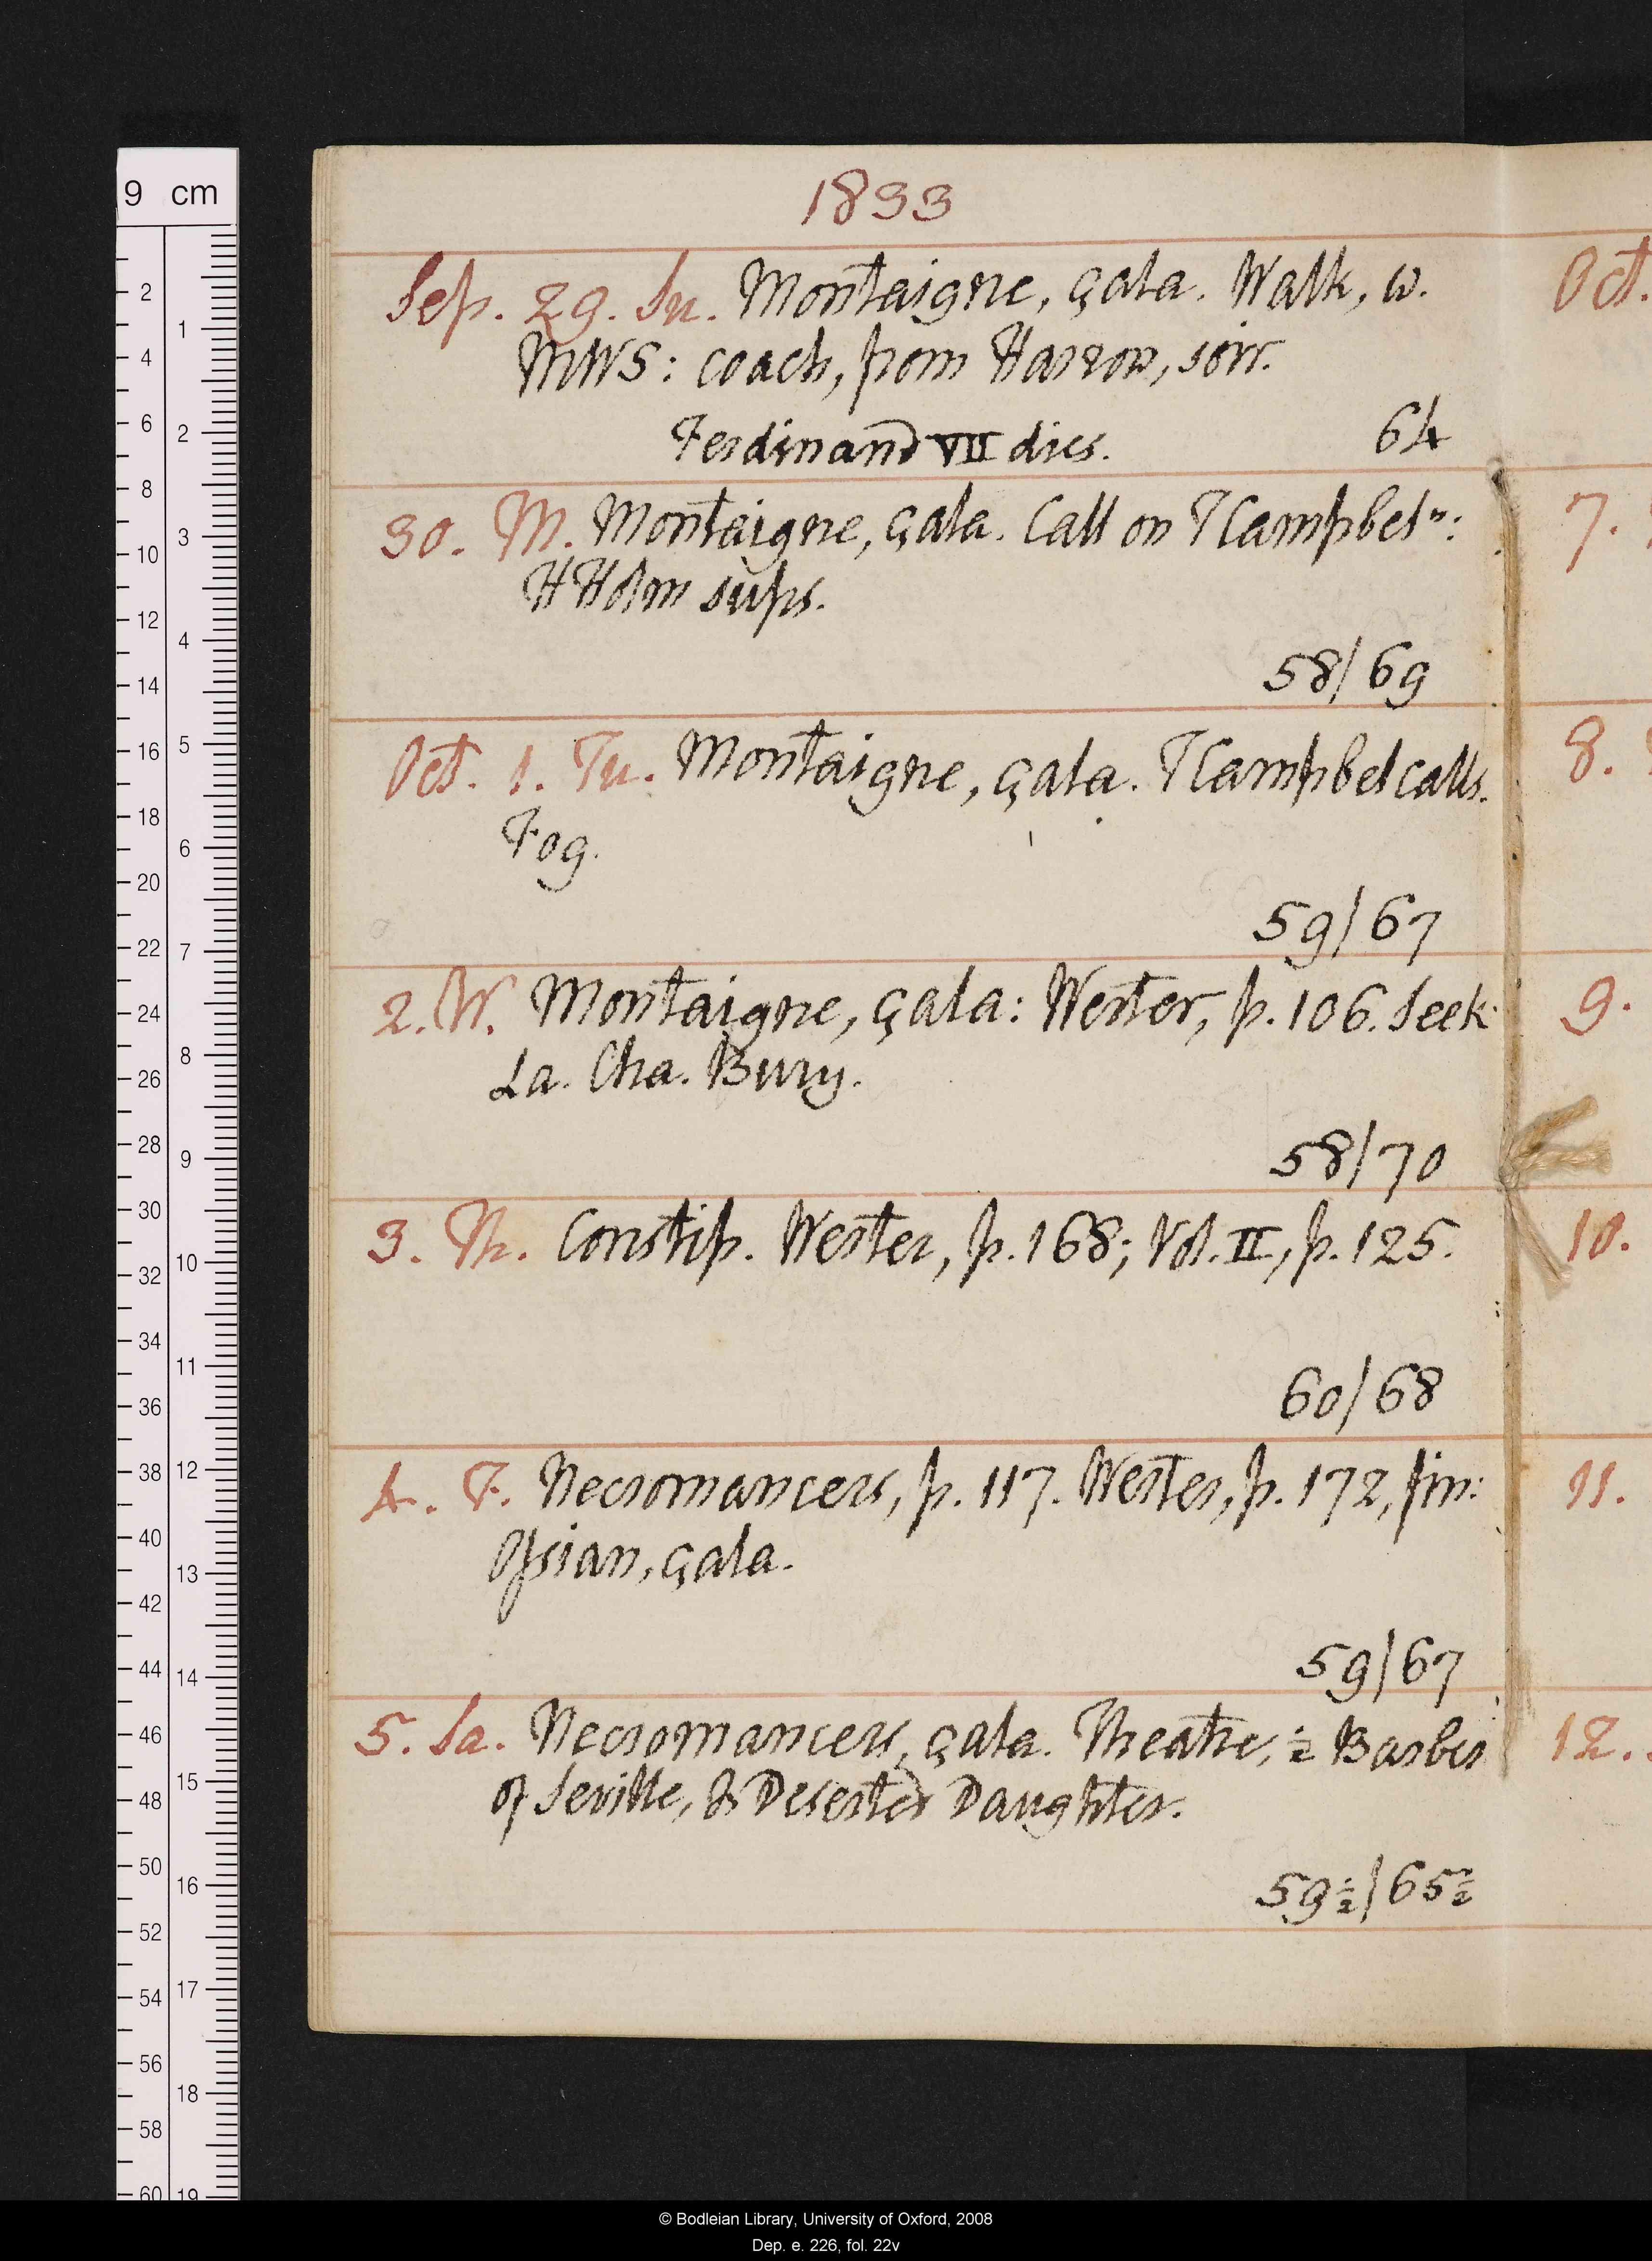 1833
Sep. 29. Su. Montaigne, çala. Walk, w.
MWS: coach, from Harrow, soir.
Ferdinand VII dies.
64
30. M. Montaigne, çala. Call on TCampbel n:
HHolm sups.
58/69
Oct. 1. Tu. Montaigne, çala. TCampbel calls.
Fog.
59/67
2. W. Montaigne, çala: Wester, p. 106. Seek
La. Cha. Bury.
58/70
3. Th. Constip. Wester, p. 168; Vol. II, p. 125.
60/68
4. F. Necromancers, p. 117. Wester, p. 172, fin:
Ossian, çala.
59/67
5. Sa. Necromancers, çala. Theatre, ½ Barber
of Seville, & Deserted Daughter.
59½/65½
Oct.
7.
8.
9.
10.
11.
12.
9 cm
2
4
6
8
10
12
14
16
18
20
22
24
26
28
30
32
34
36
38
40
42
44
46
48
50
52
54
56
58
60
1
2
3
4
5
6
7
8
9
10
11
12
13
14
15
16
17
18
19
© Bodleian Library, University of Oxford, 2008
Dep. e. 226, fol. 22v